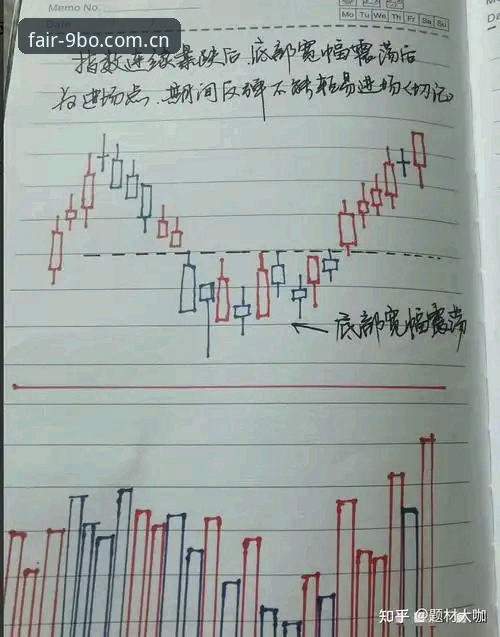 Memo No.
Mo Tu We Th Fr Sa Su
fair-9bo.com.cn
指数连续暴跌后,底部宽幅震荡后
为进场点,期间反弹不能轻易进场《切记》
底部宽幅震荡
知乎 @题材大咖